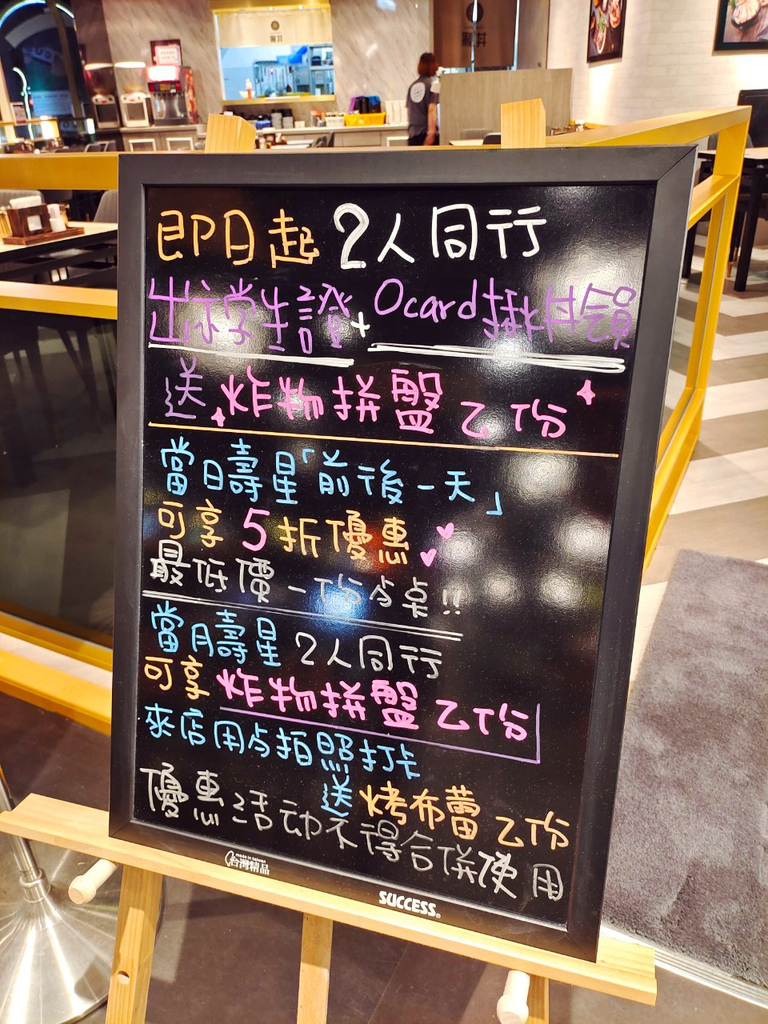 即日起 2人同行
出示學生證+Ocard揪丼員
送炸物拼盤乙份
當日壽星「前後一天」
可享5折優惠
最低價一份/桌!!
當月壽星2人同行
可享炸物拼盤乙份
來店用餐拍照打卡
送烤布蕾乙份
優惠活動不得合併使用
made in taiwan
台灣精品
SUCCESS®